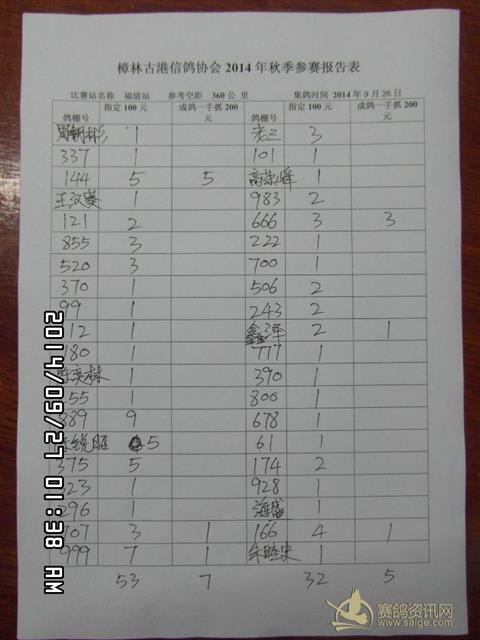 樟林古港信鸽协会 2014 年秋季参赛报告表
比赛站名称 福清站 参考空距 360公 里 集鸽时间 2014 年 9 月 26 日
鸽棚号 指定 100 元 成鸽一手抓 200 元 鸽棚号 指定 100 元 成鸽一手抓 200 元
1 老三 3
337 1 101 1
144 5 5 高崇峰 1
王汉 1 983 2
121 2 666 3 3
855 3 222 1
520 3 700 1
370 1 506 2
99 1 243 2
12 1 鑫泽 2 1
180 1 777 1
林 1 390 1
55 1 800 1
889 9 678 1
5 61 1
375 5 174 2
23 1 928 1
296 1 海盛 1
107 3 1 166 4 1
999 7 1 朱 1
53 7 32 5
2014/09/27 01:38 AM
赛鸽资讯网
www.saige.com